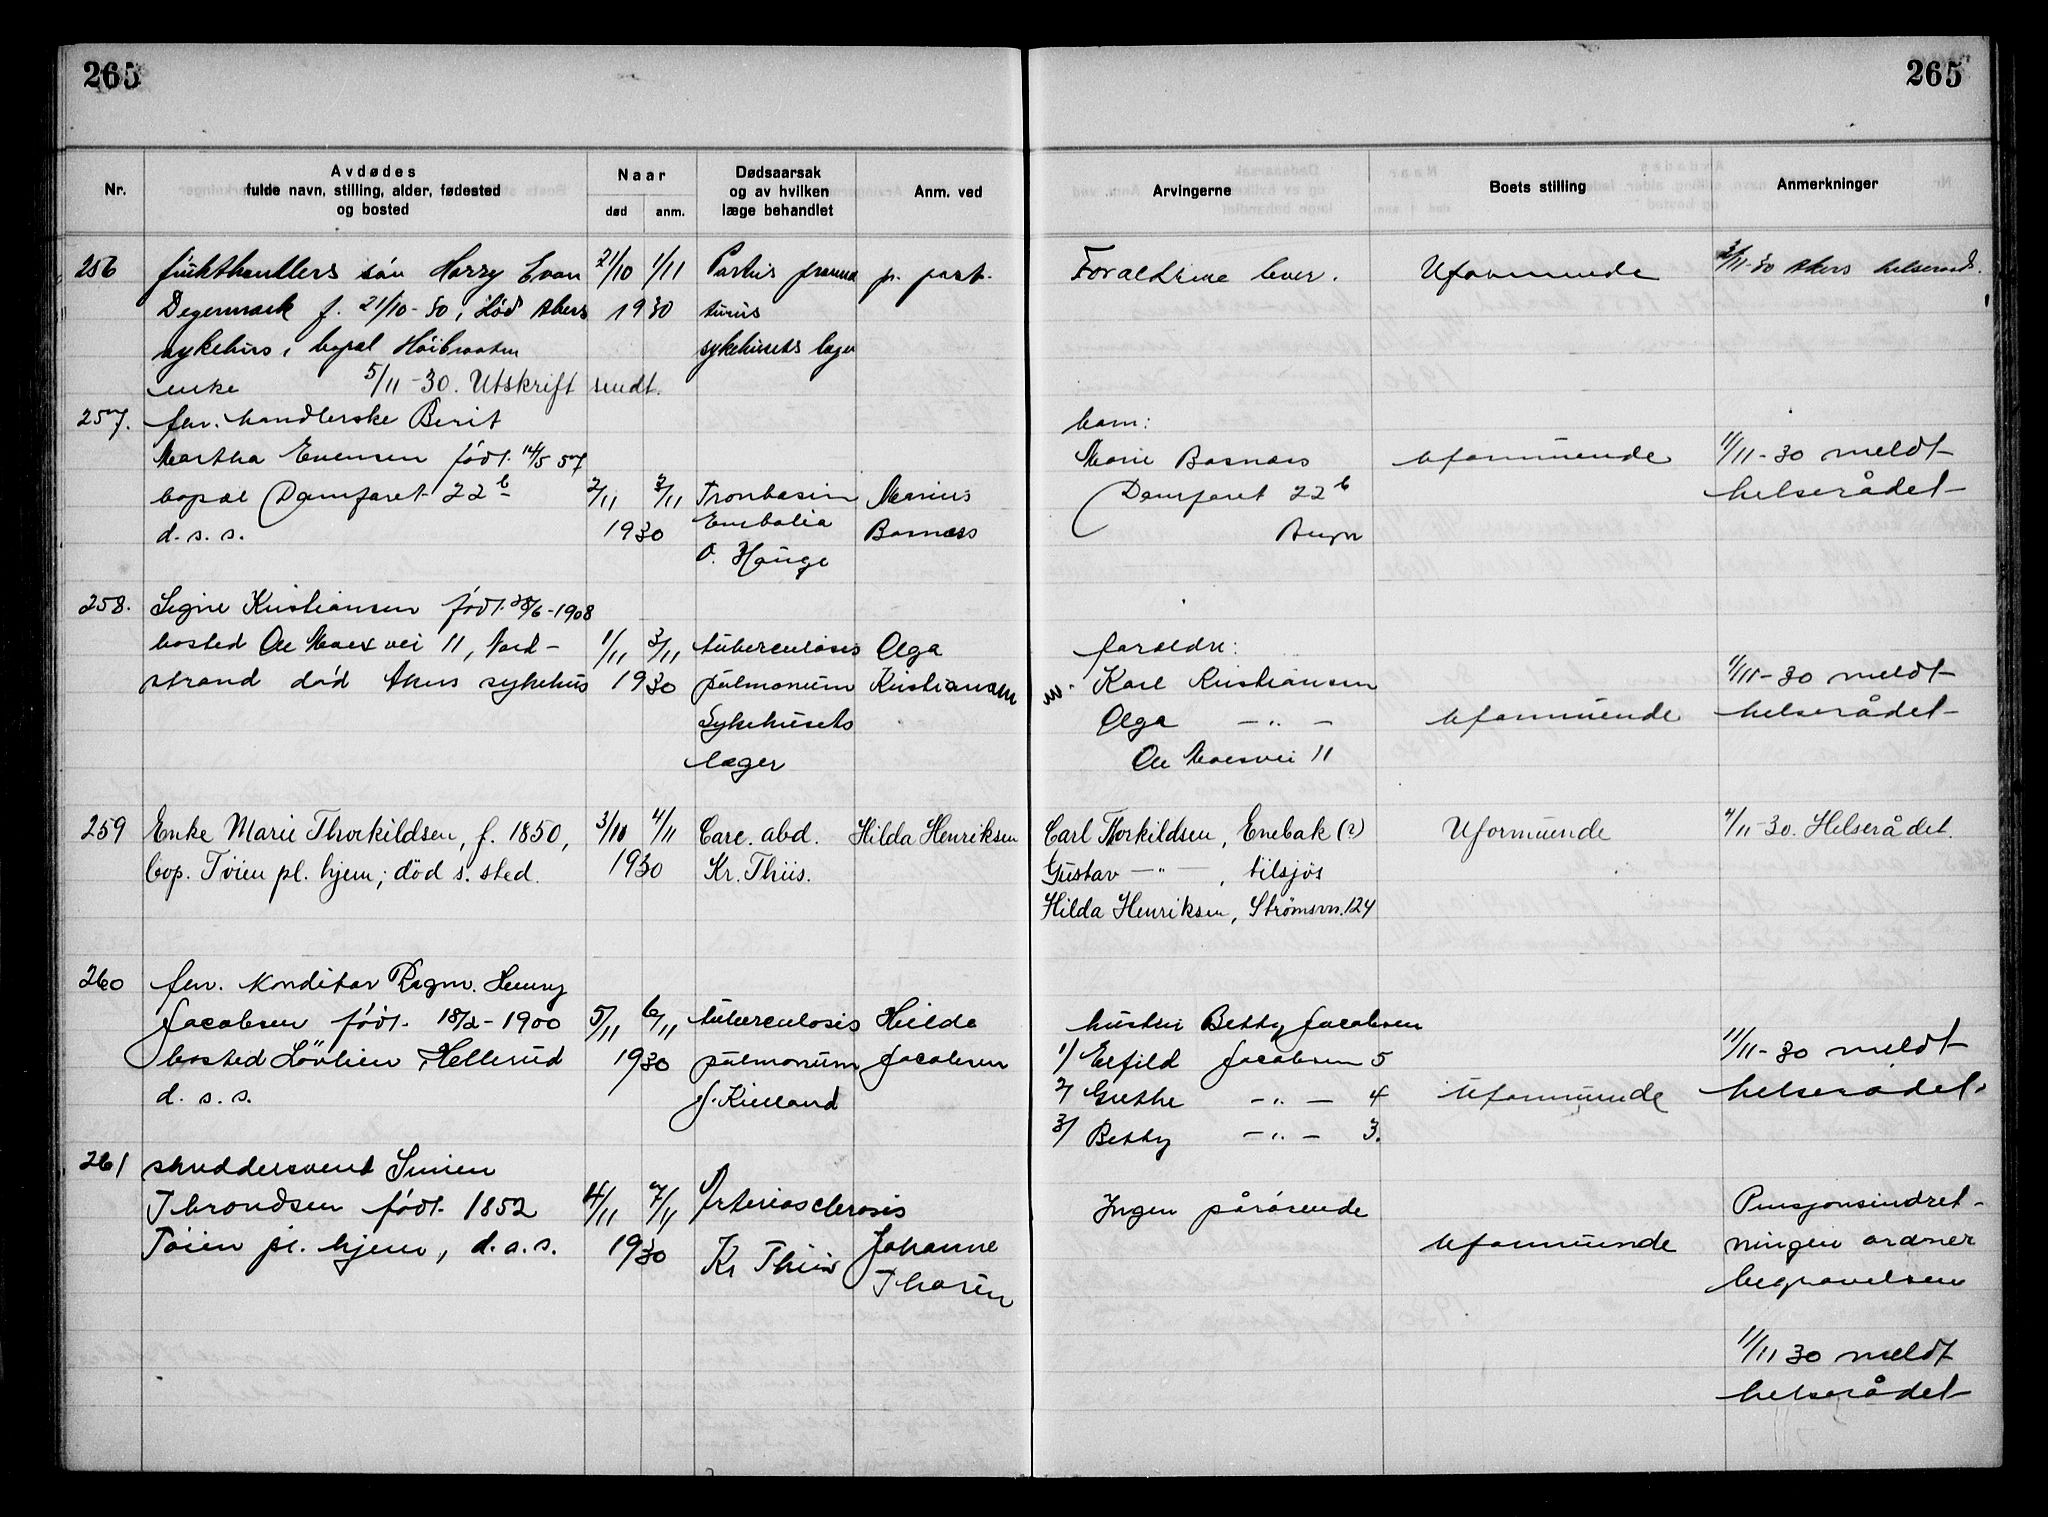 265
265
Nr.
Avdødes
fulde navn, stilling, alder, fødested
og bosted
Naar
død
anm.
Dødsaarsak
og av hvilken
læge behandlet
Anm. ved
Arvingerne
Boets stilling
Anmerkninger
256
sön Harry Evan
Degermark f. 21/10-30, död Akers
sykehus, bopæl Höibraaten
5/11-30. Utskrift sendt.
21/10 1/11
1930
Partus præma
turus
sykehusets læger
p. part.
Foraldrene lever.
Uformuende
3/11-30 Akers helseraad.
257.
fhv. handlerske Berit
Martha Evensen födt 14/5 57
bopæl Damfaret 22b
d. s. s.
2/11 3/11
1930
Embolia
O. Hauge
Marius
Bosnæss
barn:
Marie Bosnæss
Damfaret 22b
Bryn
Uformuende
11/11-30 meldt
helserådet
258.
Signe Kristiansen födt 28/6-1908
bosted Ole Moes vei 11, Nord-
strand död Akers sykehus
1/11 3/11
1930
tuberculosis
pulmonum
Sykehusets
læger
Olga
Kristiansen
foraldre:
Karl Kristiansen
Olga -"-
Ole Moesvei 11
Uformuende
11/11-30 meldt
helserådet
259
Enke Marie Thorkildsen, f. 1850,
bop. Töien pl. hjem; död s. sted.
3/10 4/11
1930
Carc. abd.
Kr. Thiis.
Hilda Henriksen
Carl Thorkildsen, Enebak (?)
Gustav -"-, tilsjös
Hilda Henriksen, Strømsvn. 124
Uformuende
4/11-30. Helserådet.
260
fhv. Konditor Ragn. Henry
Jacobsen födt 18/2-1900
bosted Lövlien, Hellerud
d. s. s.
5/11 6/11
1930
tuberculosis
pulmonum
J. Kielland
Hilda
Jacobsen
hustru Betty Jacobsen
1/ Elfild Jacobsen 5
2/ Grethe -"- 4
3/ Betty -"- 3.
Uformuende
11/11-30 meldt
helserådet.
261
skreddersvend Simen
Throndsen födt 1852
Töien pl. hjem, d. s. s.
4/11 7/11
1930
Arteriosclerosis
Kr Thiis
Johanne
Thorén
Ingen pårörende
Uformuende
Pensjonsindret-
ningen ordner
begravelsen
11/11 30 meldt
helserådet